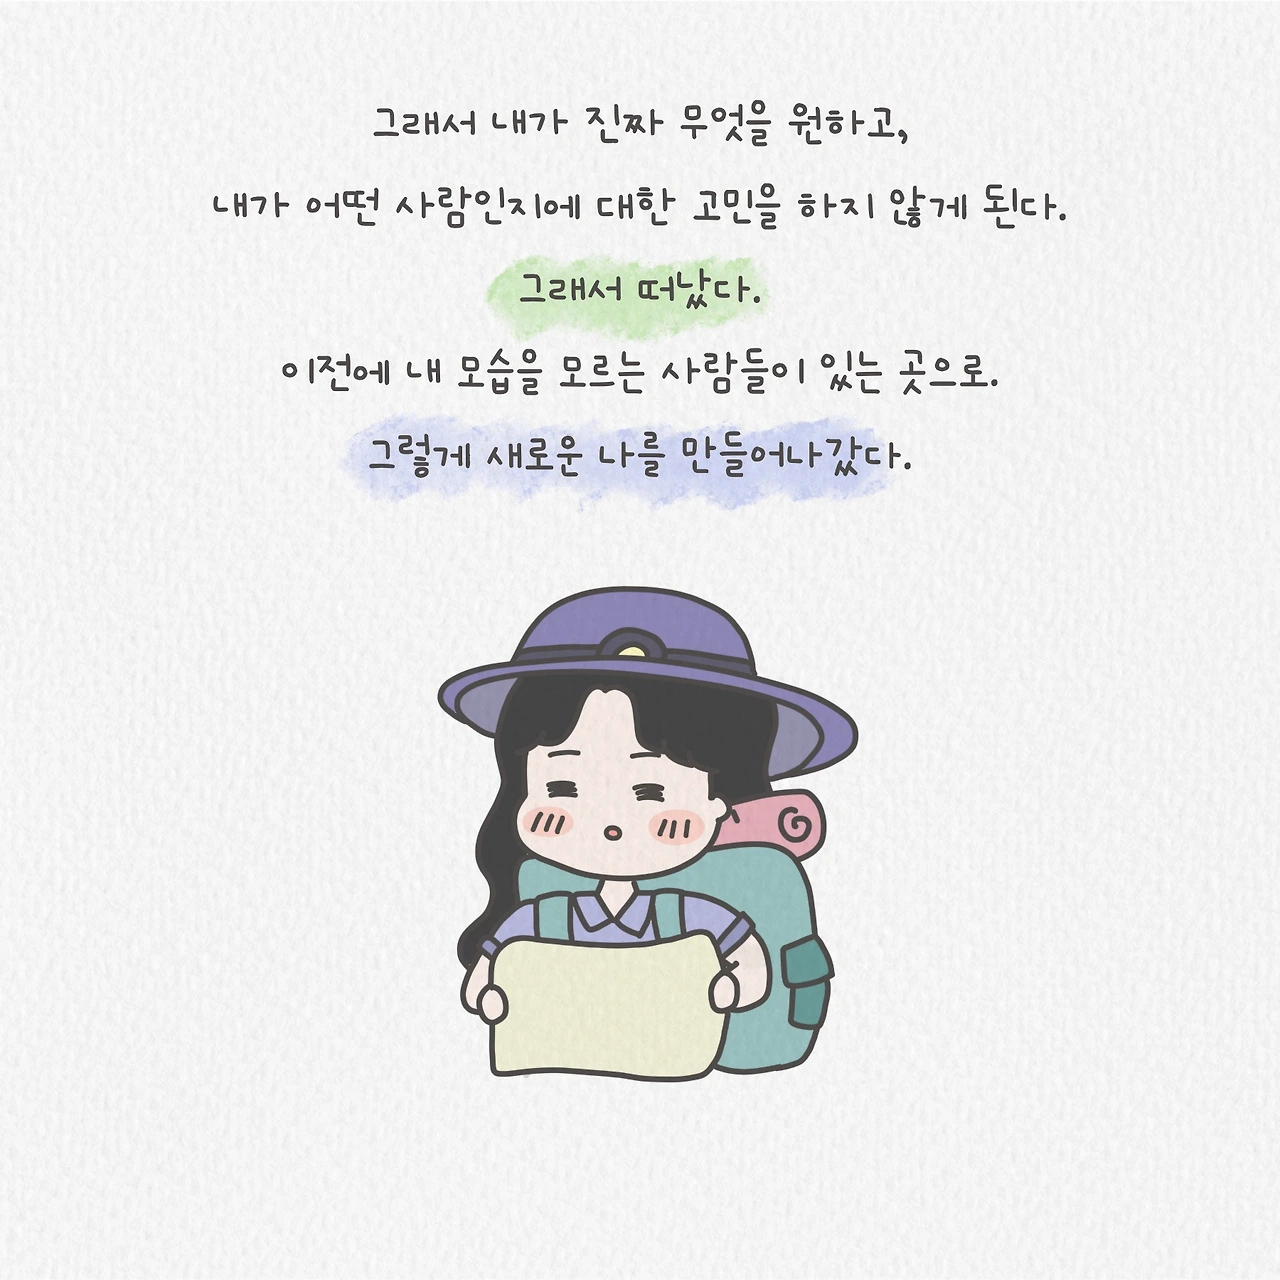 그래서 내가 진짜 무엇을 원하고,
내가 어떤 사람인지에 대한 고민을 하지 않게 된다.
그래서 떠났다.
이전에 내 모습을 모르는 사람들이 있는 곳으로.
그렇게 새로운 나를 만들어나갔다.